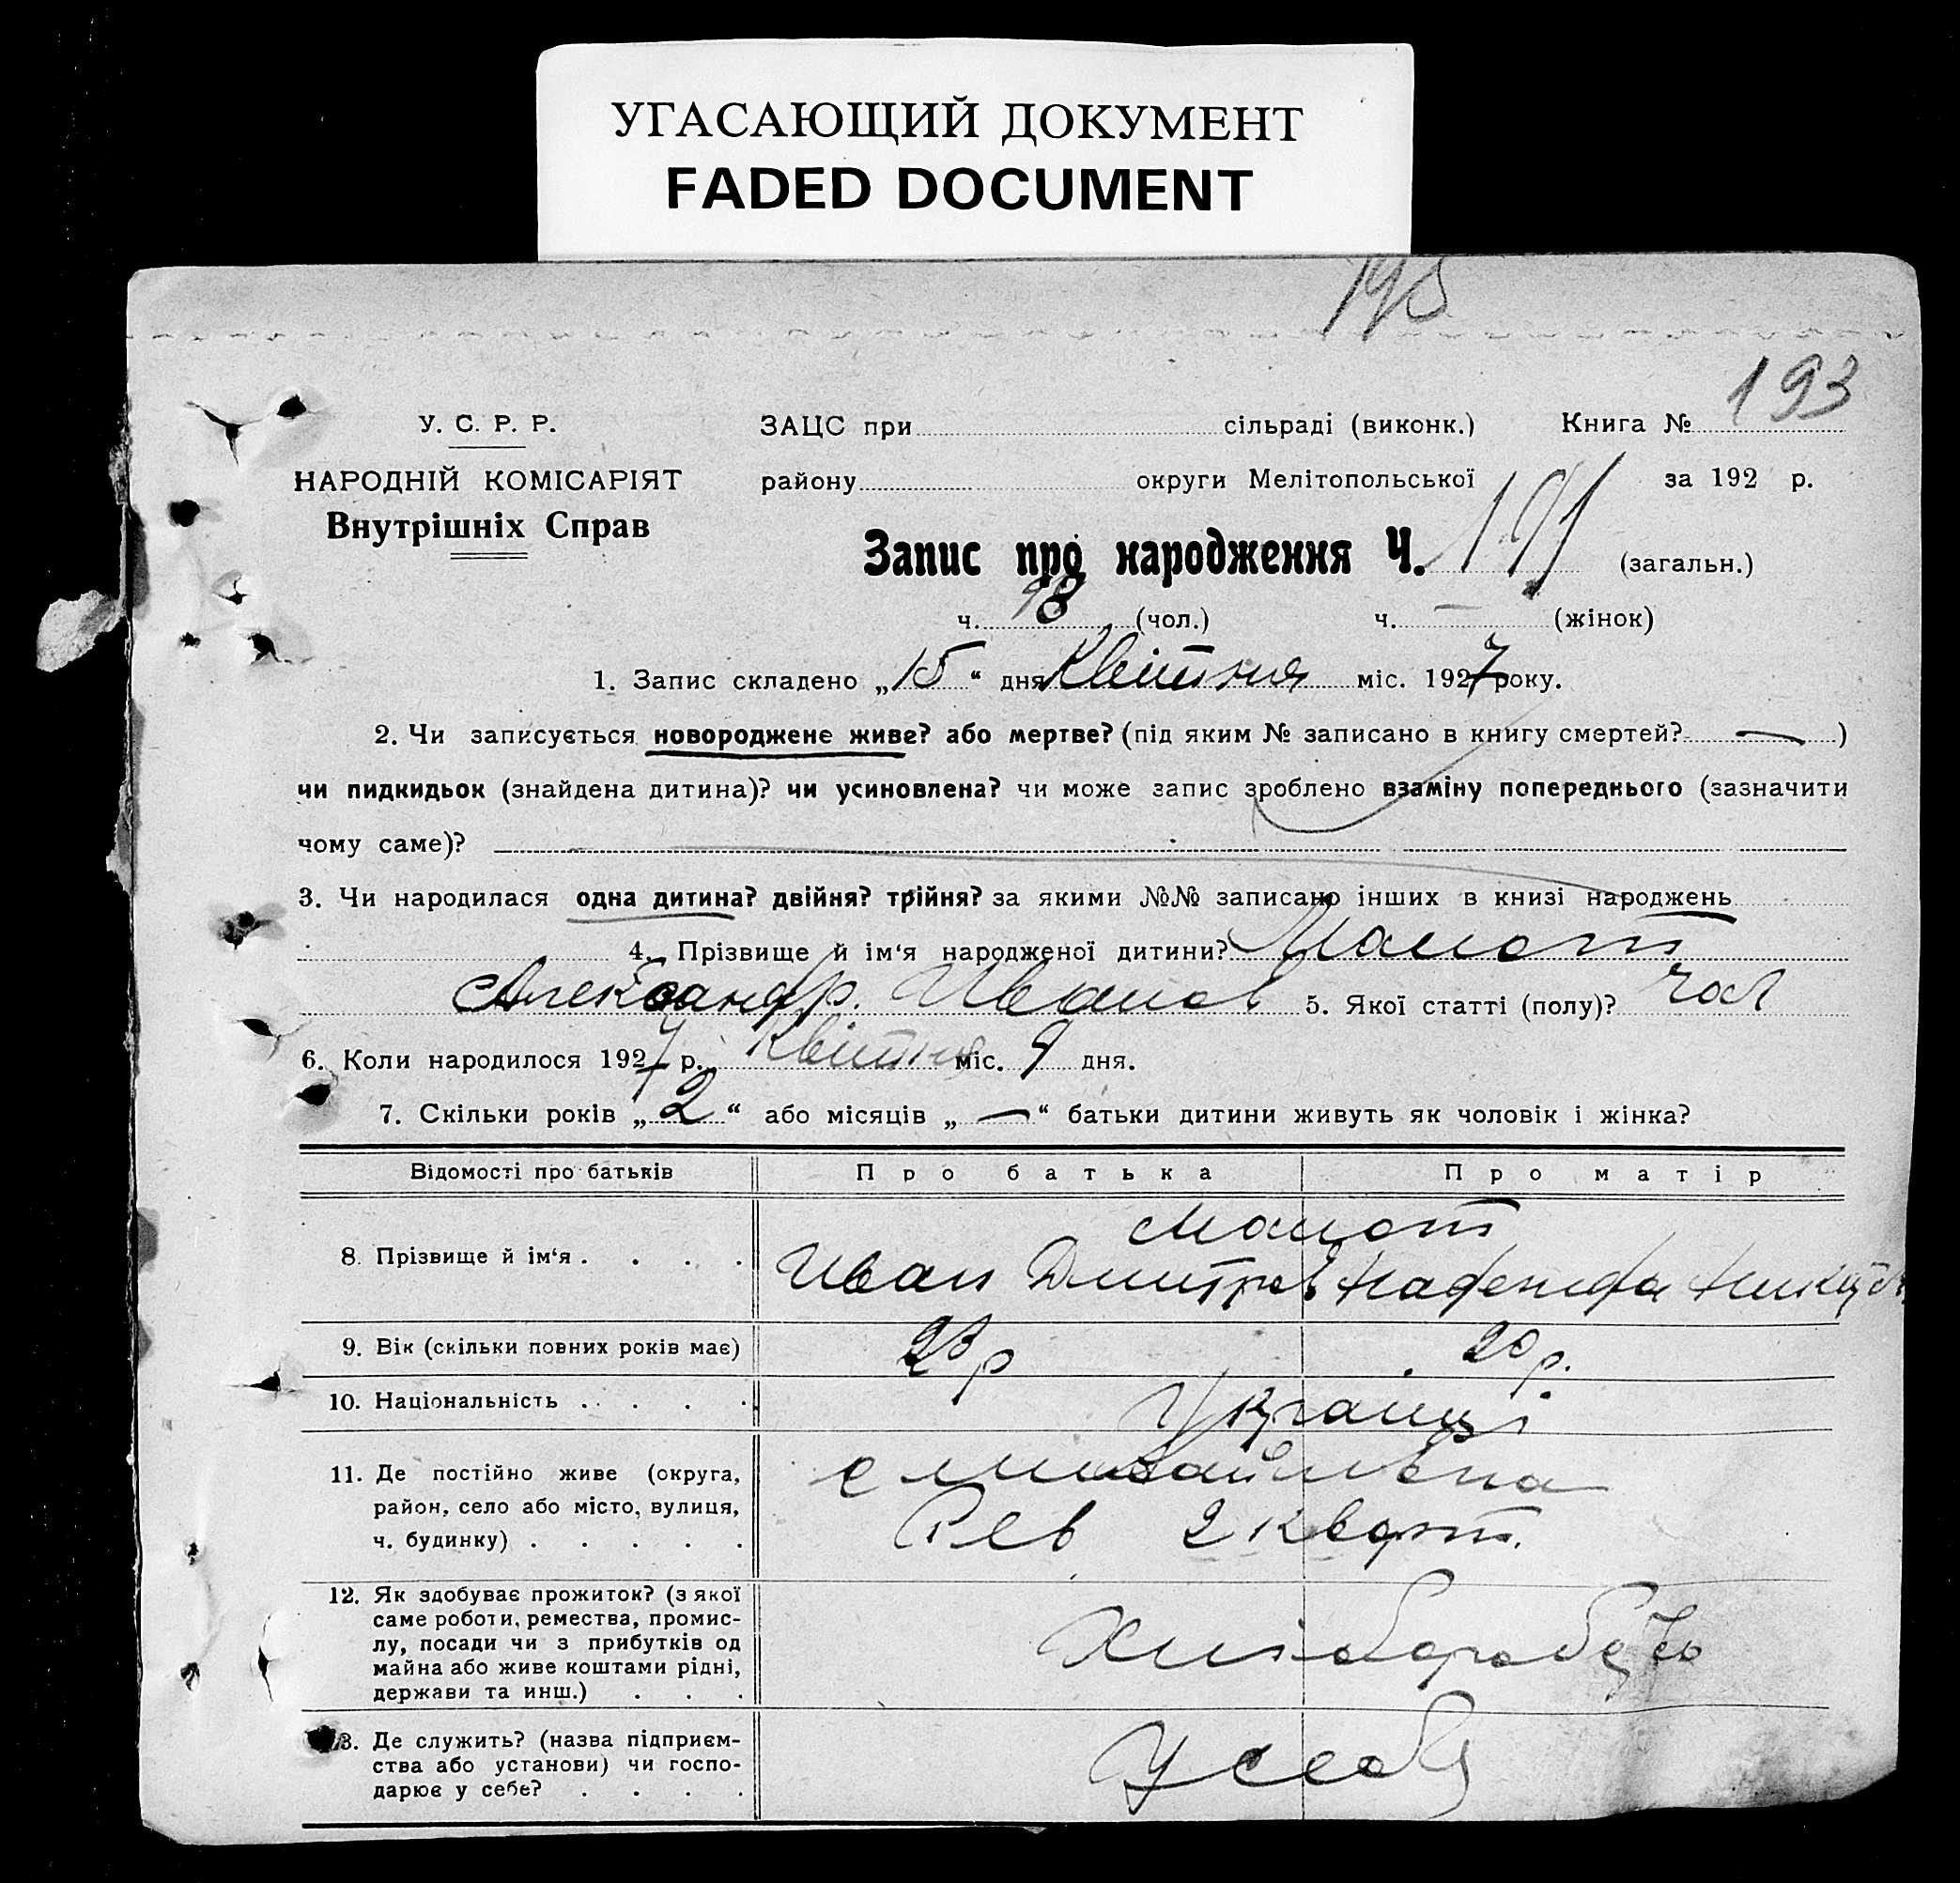 УГАСАЮЩИЙ ДОКУМЕНТ
FADED DOCUMENT
193
У. С. Р. Р.
НАРОДНІЙ КОМІСАРІЯТ
Внутрішніх Справ
ЗАЦС при сільраді (виконк.) Книга №
району округи Мелітопольської за 192 р.
Запис про народження Ч. 191 (загальн.)
ч. 98 (чол.) ч. — (жінок)
1. Запис складено „15“ дня Квітня міс. 1927 року.
2. Чи записується новороджене живе? або мертве? (під яким № записано в книгу смертей? — )
чи пидкидьок (знайдена дитина)? чи усиновлена? чи може запис зроблено взаміну попереднього (зазначити
чому саме)?
3. Чи народилася одна дитина? двійня? трійня? за якими №№ записано інших в книзі народжень
4. Прізвище й ім‘я народженої дитини? Мамот
Александр. Иванов 5. Якої статті (полу)? чол
6. Коли народилося 1927 р. Квітня міс. 9 дня.
7. Скільки років „2“ або місяців „—“ батьки дитини живуть як чоловік і жінка?
Відомості про батьків Про батька Про матір
8. Прізвище й ім‘я . . . . Мамот
Иван Дмитров Надежда
9. Вік (скільки повних років має) 23 р 20 р.
10. Національність . . . . Українці
11. Де постійно живе (округа,
район, село або місто, вулиця,
ч. будинку) . . . . .
с Михайлівка
Рев 2 кварт.
12. Як здобуває прожиток? (з якої
саме роботи, ремества, промис-
лу, посади чи з прибутків од
майна або живе коштами рідні,
держави та инш.) . . .
Хліборобець
13. Де служить? (назва підприєм-
ства або установи) чи госпо-
дарює у себе? . . . .
У себя